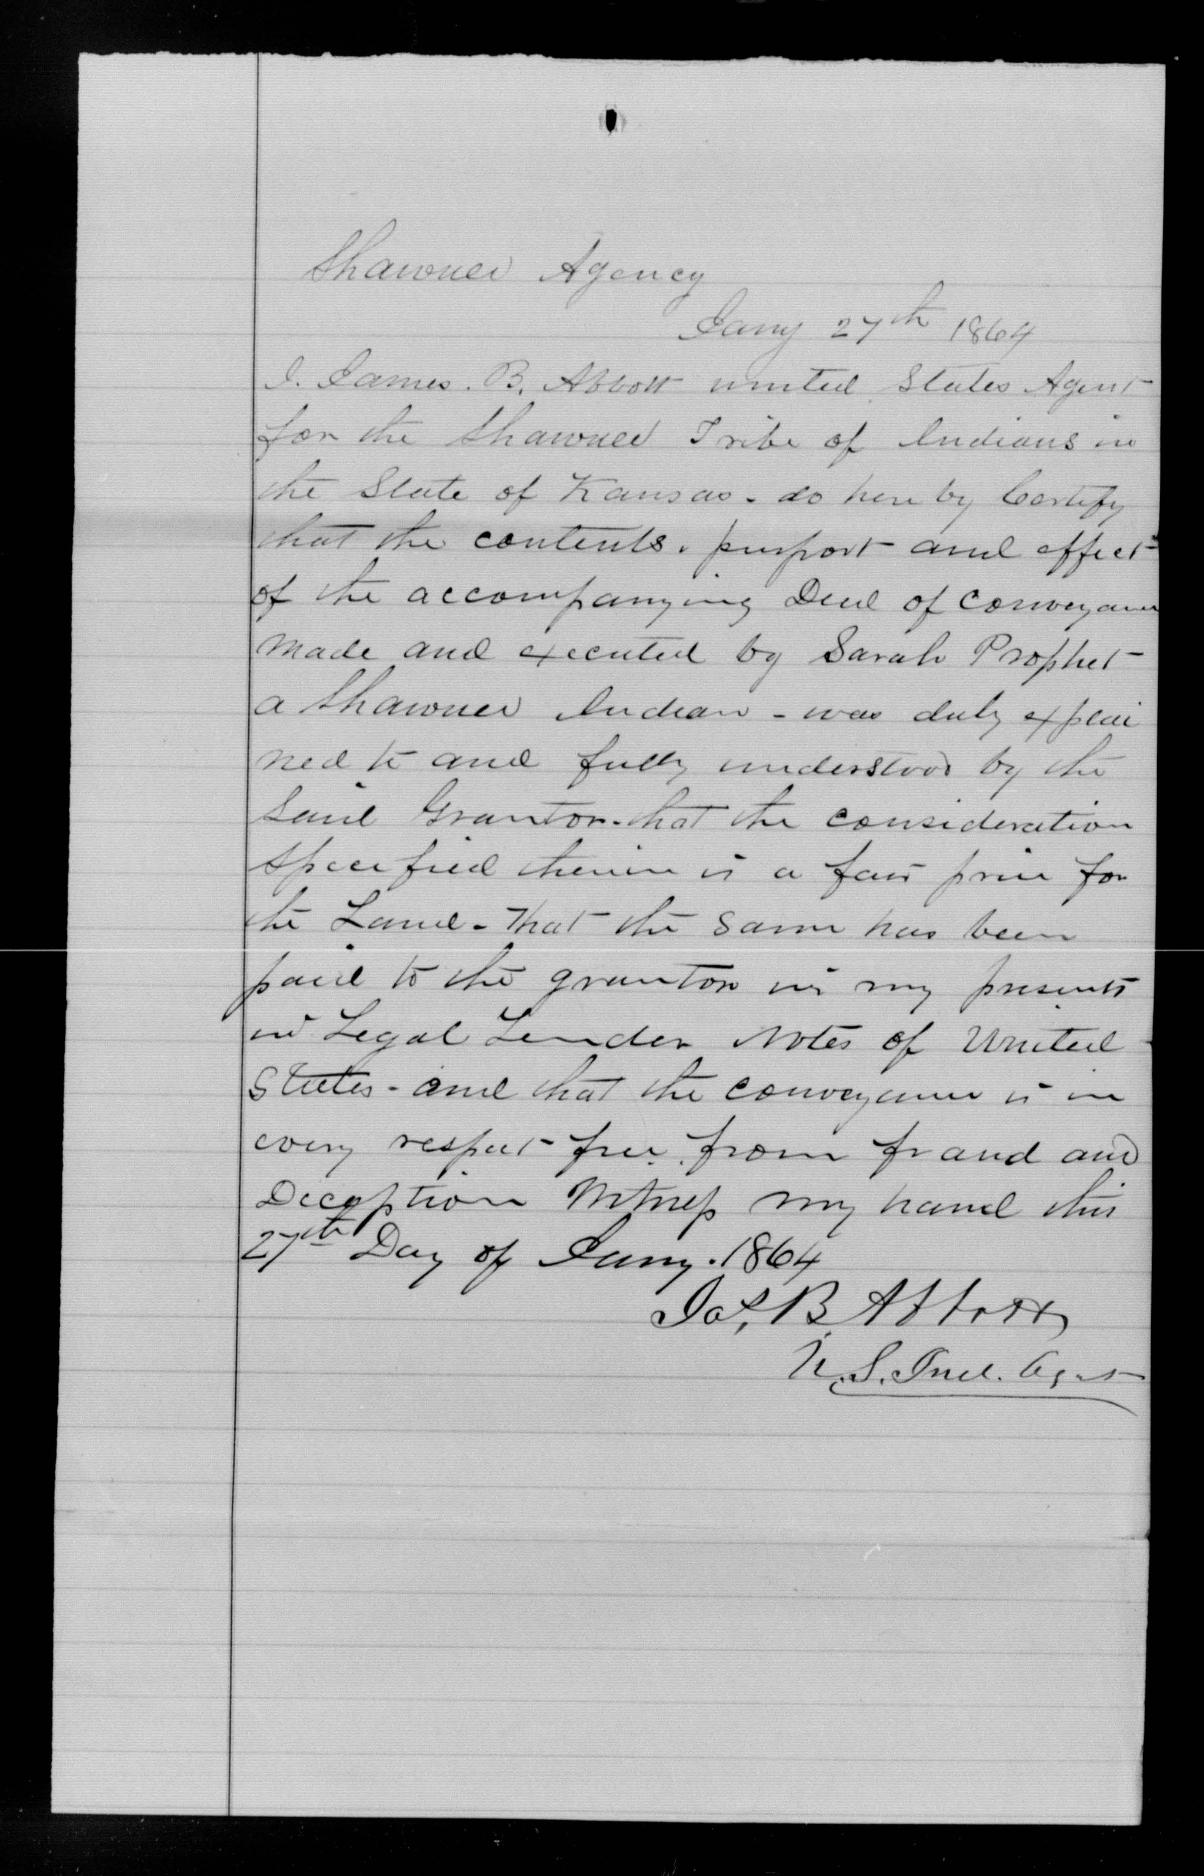 Shawnee Agency
Jany 27th 1864
I. James. B. Abbott united States Agent
for the Shawnee Tribe of Indians in
the State of Kansas - do here by Certify
that the contents. purport and effect
of the accompanying Deed of conveyance
made and executed by Sarah Prophet
a Shawnee Indian - was duly explai
ned to and fully understood by the
said Grantor - that the consideration
specified therein is a fair price for
the Land - That the same has been
paid to the grantor in my presents
in Legal Tender Notes of United
States - and that the conveyance is in
every respect free from fraud and
Deception Witness my hand this
27th Day of Jany. 1864
Jas. B. Abbott
U. S. Ind. Agent